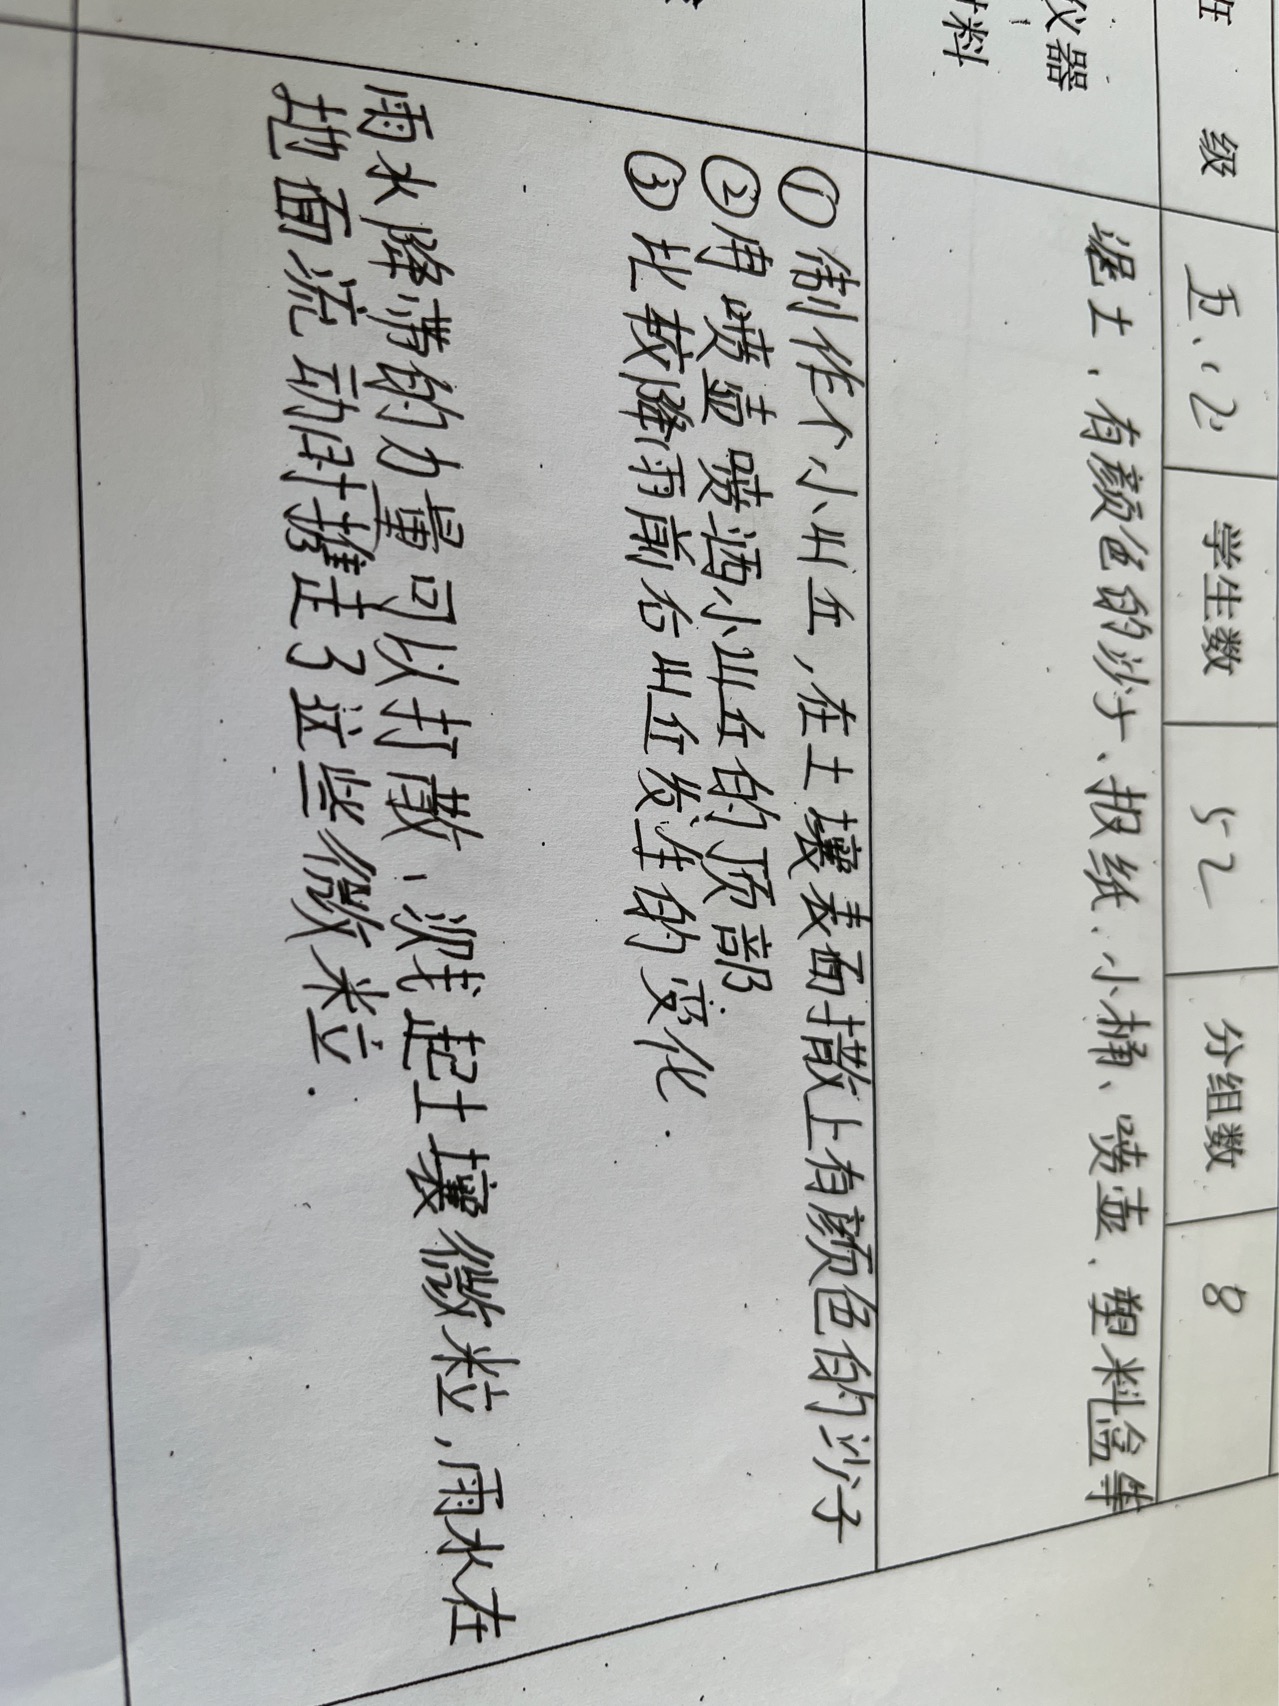 班 级 五、(2) 学生数 52 分组数 8
仪器
材料
湿土、有颜色的沙子、报纸、小桶、喷壶、塑料盒等
① 制作个小山丘,在土壤表面撒上有颜色的沙子
② 用喷壶喷洒小山丘的顶部
③ 比较降雨前后山丘发生的变化.
雨水降落的力量可以打散、溅起土壤微粒,雨水在
地面流动时推走了这些微粒.